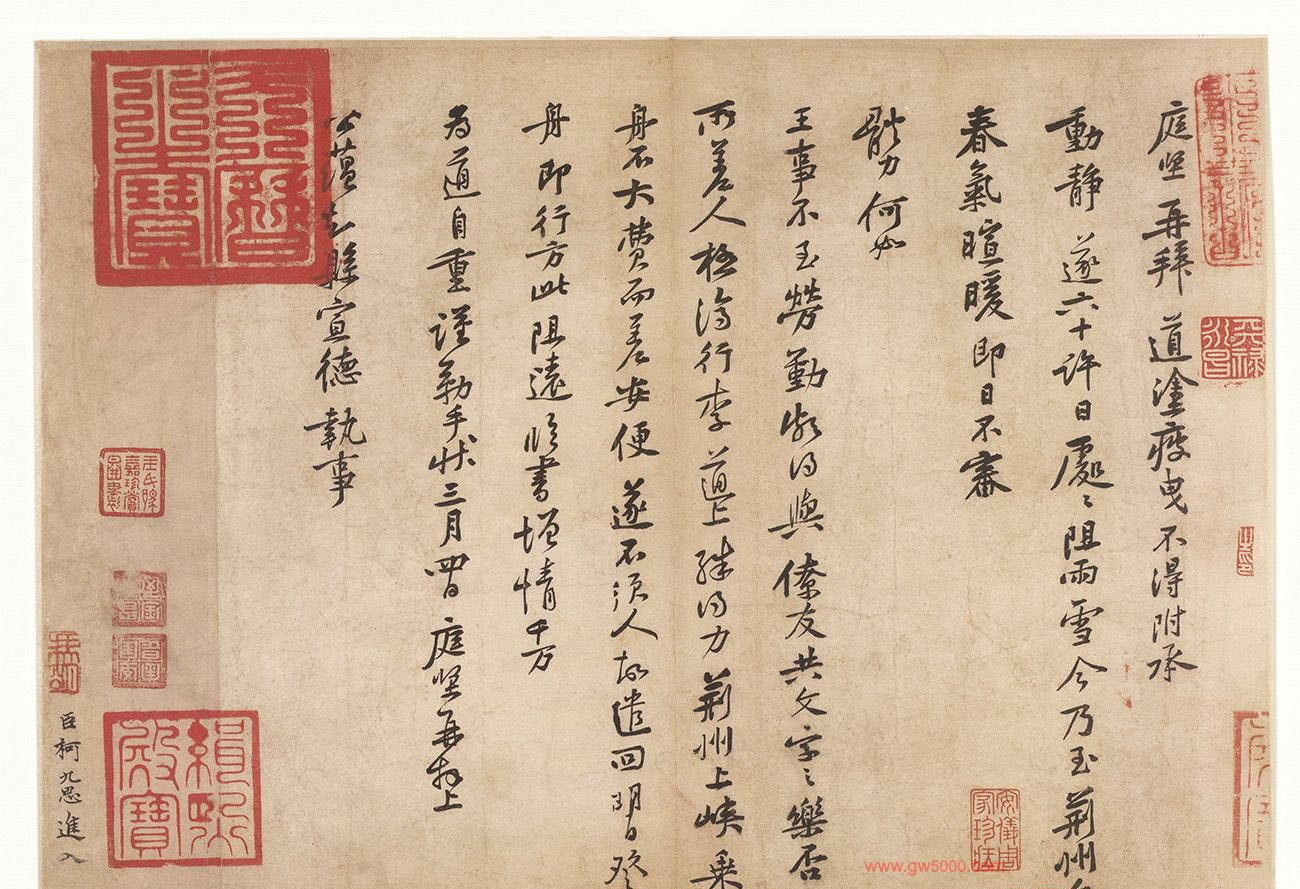 庭堅再拜 道塗疲曳不得附承
動靜 遂六十許日處〻阻雨雪今乃至荊州
春氣暄暖即日不審
體力何如
王事不至勞勤頗得與僚友共文字之樂否
所差人極濟行李道上殊得力荊州上峽乘
舟不大費而差安便遂不須人故遣回明日發
舟即行方此阻遠臨書增情千万
為道自重謹勒手狀三月四日 庭堅再拜上
公蘊知縣宣德執事
臣柯九思進入
天曆之寶
緝熙殿寶
安儀周家珍藏
www.gw5000.com